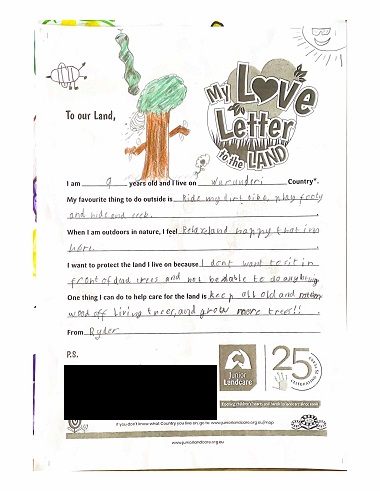 My Love Letter to the LAND
To our Land,
I am 9 years old and I live on Wurunderi Country*.
My favourite thing to do outside is Ride my dirt bike, play
and hide and seek.
When I am outdoors in nature, I feel Relaxs and happy that im
here.
I want to protect the land I live on because I dont want to sit in
front of dead trees and not be dable to do anything.
One thing I can do to help care for the land is keep all old and rotten
wood off living trees, and grow more trees!!.
From Ryder
P.S.
Junior Landcare
25 YEARS CELEBRATING
If you don't know what Country you live on, go to www.juniorlandcare.org.au/map
www.juniorlandcare.org.au